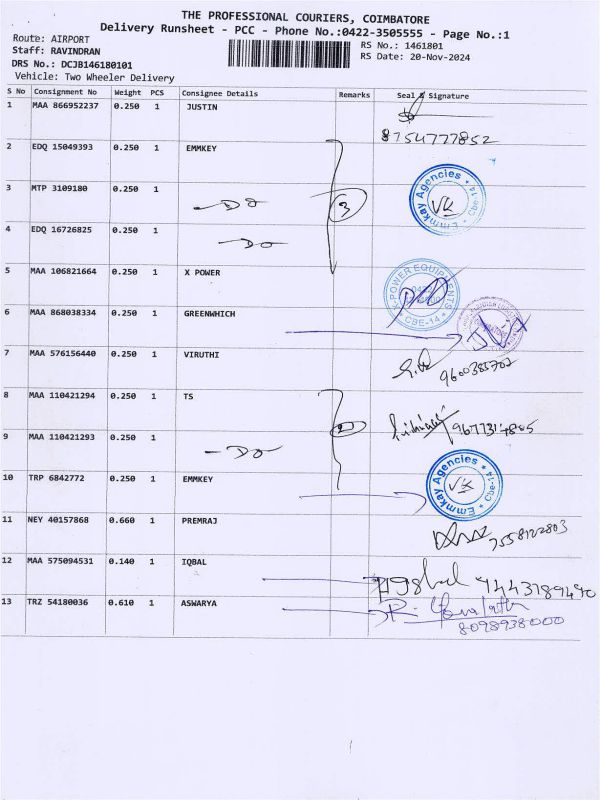 THE PROFESSIONAL COURIERS, COIMBATORE
Delivery Runsheet - PCC - Phone No.:0422-3505555 - Page No.:1
Route: AIRPORT
RS No.: 1461801
Staff: RAVINDRAN
RS Date: 20-Nov-2024
DRS No.: DCJB146180101
Vehicle: Two Wheeler Delivery
S No Consignment No Weight PCS Consignee Details Remarks Seal & Signature
1 MAA 866952237 0.250 1 JUSTIN
8754777852
2 EDQ 15049393 0.250 1 EMMKEY
3 MTP 3109180 0.250 1 -DO- 3
Emmkay Agencies * Cbe-14 *
VK
4 EDQ 16726825 0.250 1 -DO-
5 MAA 106821664 0.250 1 X POWER
X-POWER EQUIPMENTS * CBE-14 *
6 MAA 868038334 0.250 1 GREENWHICH
7 MAA 576156440 0.250 1 VIRUTHI
9600385702
8 MAA 110421294 0.250 1 TS
2 9677314805
9 MAA 110421293 0.250 1 -DO-
10 TRP 6842772 0.250 1 EMMKEY
Emmkay Agencies * Cbe-14 *
VK
11 NEY 40157868 0.660 1 PREMRAJ
7558122803
12 MAA 575094531 0.140 1 IQBAL
Iqbal 9443189490
13 TRZ 54180036 0.610 1 ASWARYA
8098938000